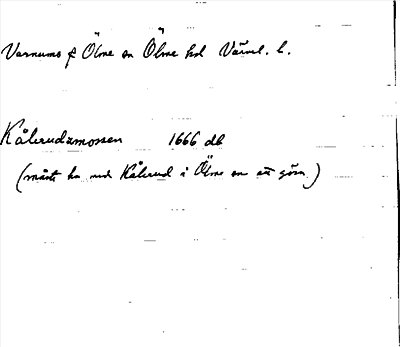 Varnums s Ölme sn Ölme hd Värml. l.
Kålerudsmossen 1666 db
(måste ha med Kålerud i Ölme sn att göra)